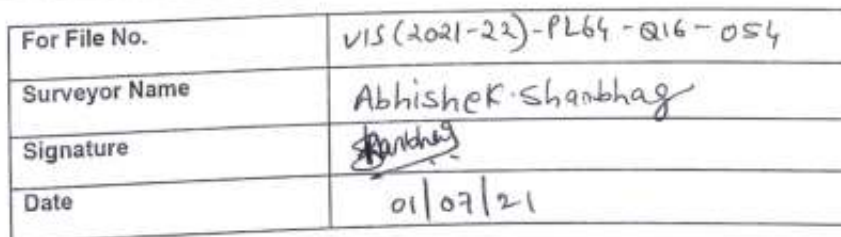 For File No. VIS(2021-22)-PL64-Q16-054
Surveyor Name Abhishek Shanbhag
Signature Shanbhag
Date 01/07/21